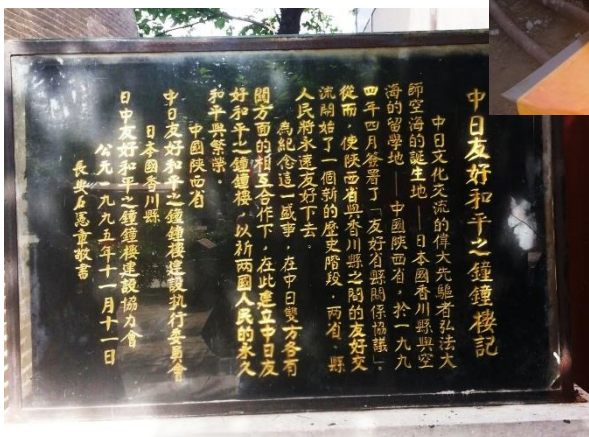 中日友好和平之鐘鐘樓記
中日文化交流的偉大先驅者弘法大
師空海的誕生地——日本國香川縣與空
海的留學地——中國陝西省，於一九九
四年四月簽署了「友好省縣關係協議」。
從而，使陝西省與香川縣之間的友好交
流開始了一個新的歷史階段，两省、縣
人民將永遠友好下去。
為紀念這一盛事，在中日雙方各有
關方面的相互合作下，在此建立中日友
好和平之鐘鐘樓，以祈兩國人民的永久
和平與繁榮。
中國陝西省
中日友好和平之鐘鐘樓建設执行委員會
日本國香川縣
日中友好和平之鐘鐘樓建設協力會
公元一九九五年十一月十一日
長安石憲章敬書